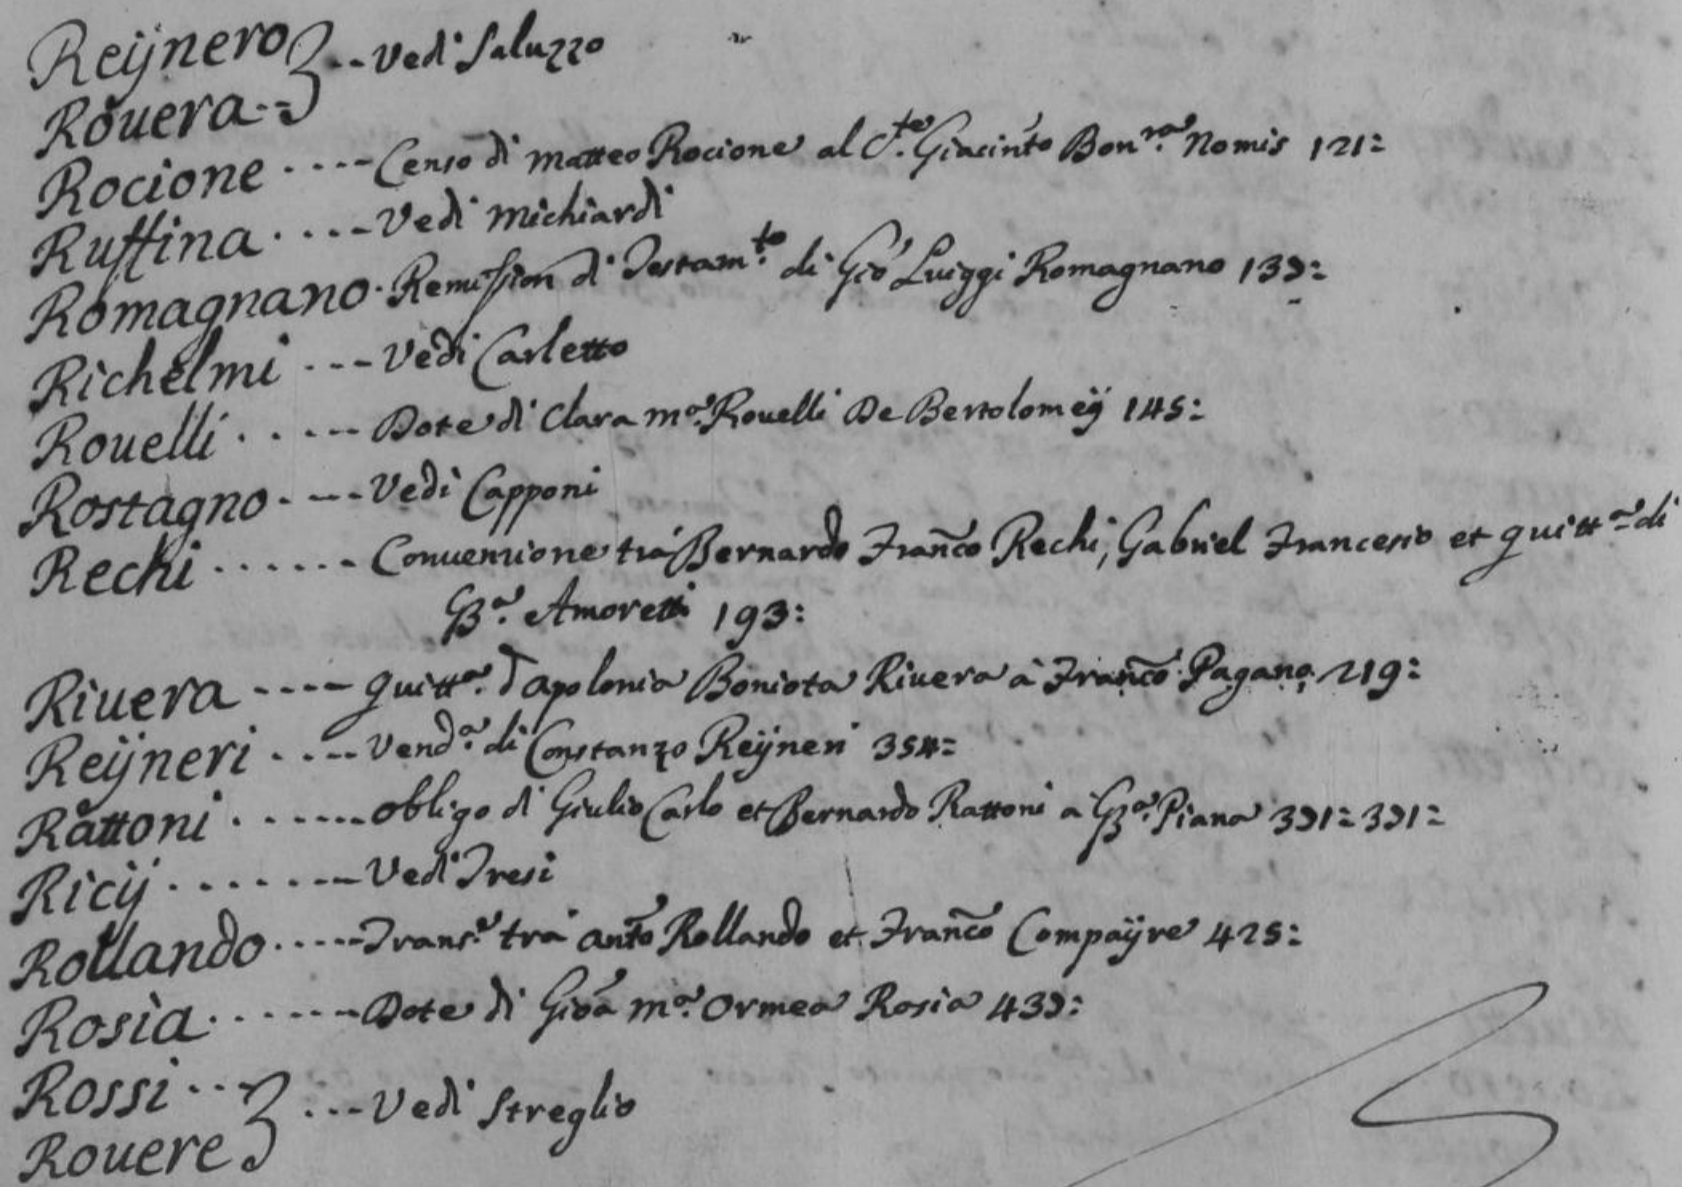 Reÿnero
Rouera -- } -- Vedi Saluzzo
Rocione ---- Censo di Matteo Rocione al C.te Giacinto Bon.ra Nomis 121:
Ruffina ---- Vedi Michiardi
Romagnano. Remission di Testam.to di Gio Luiggi Romagnano 139:
Richelmi ---- Vedi Carletto
Rouelli ---- Dote di Clara M.a Rouelli De Bertolomeÿ 145:
Rostagno ---- Vedi Capponi
Rechi ------ Conuentione trà Bernardo Franco Rechi, Gabriel Francesio et quitt.a di
GB.a Amoretti 193:
Riuera ---- quitt.a d'apolonia Boniota Riuera à Franco Pagano 219:
Reÿneri ---- Vend.a di Constanzo Reÿneri 354:
Rattoni ------ obligo di Giulio Carlo et Bernardo Rattoni à GB.a Piana 391: 391:
Ricij ------- Vedi Tresi
Rollando ----- Trans.e trà Anto Rollando et Franco Compaÿre 425:
Rosia ------ Dote di Gioa M.a Ormea Rosia 439:
Rossi ---
Rouere } ---- Vedi Streglio